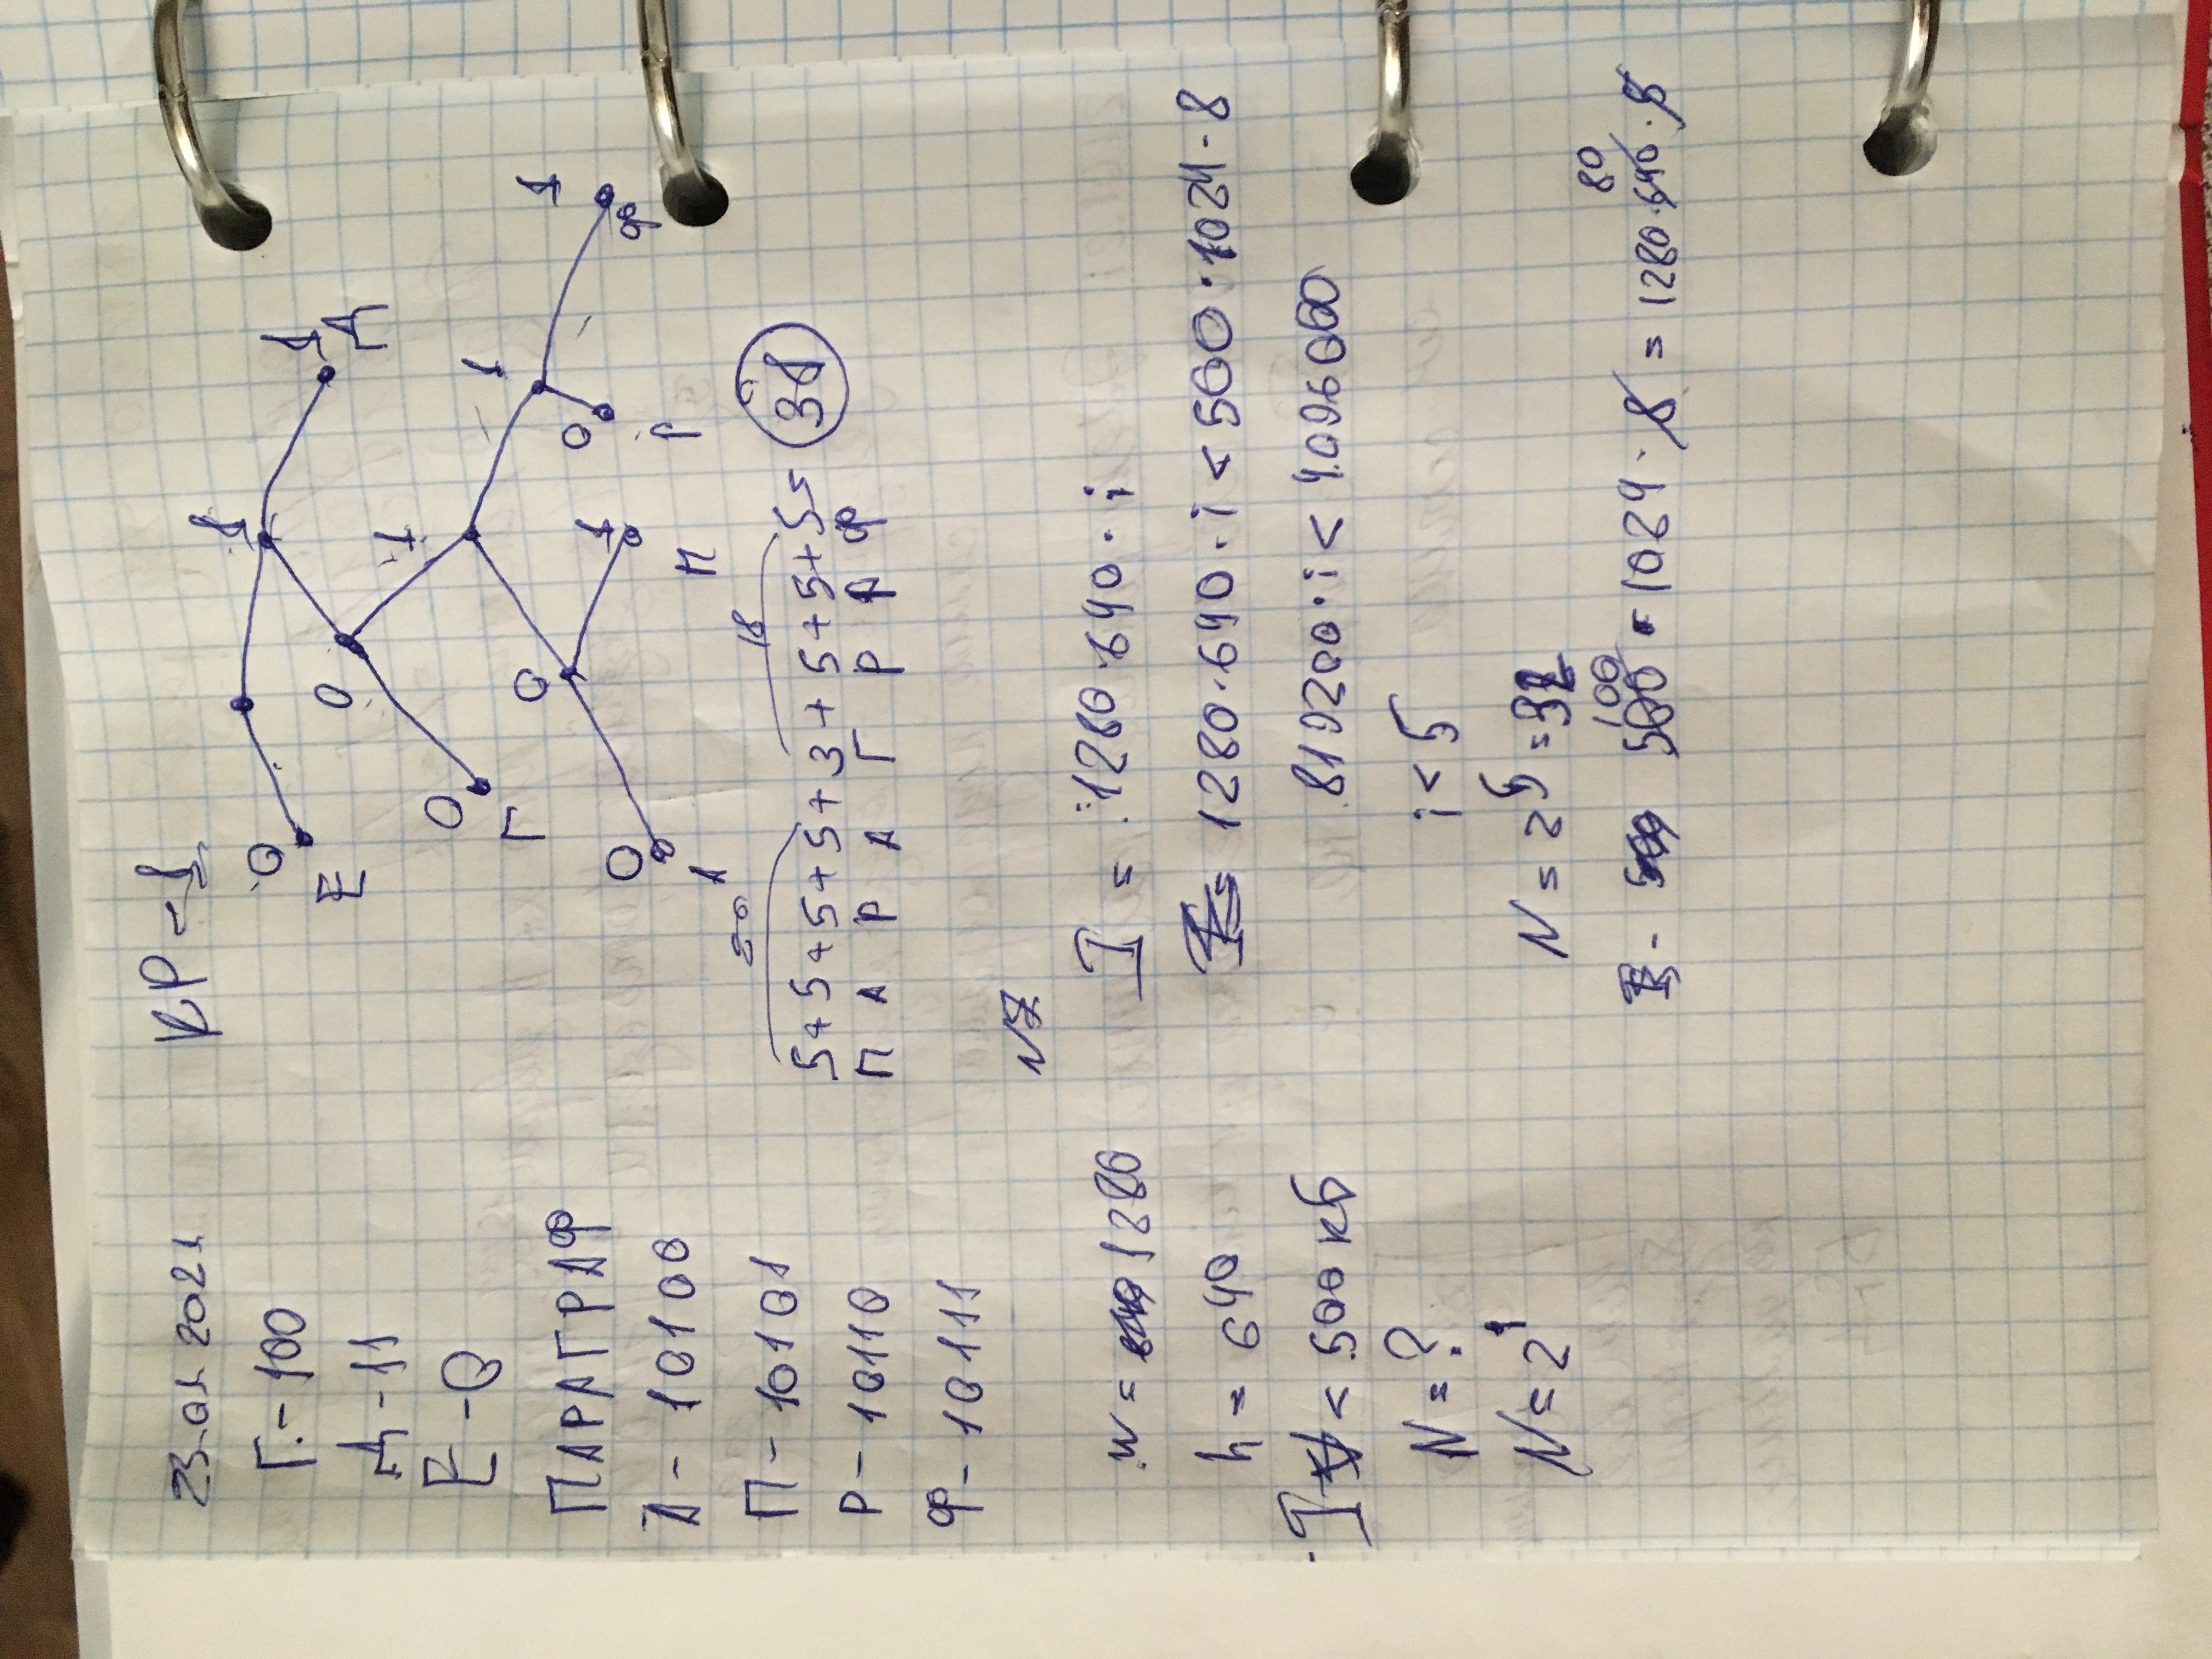 23.01.2021
КР-1
Г.-100
Д-11
Е-0
ПАРАГРАФ
А-10100
П-10101
Р-10110
Ф-10111
0 1
Е
0 1
Д
0 1
Г
0 1
0 1 0 1
А П Р Ф
20 18
5+5+5+5+3+5+5+5= 38
П А Р А Г Р А Ф
N7
w = 1280
h = 640
I < 500 кб
N = ?
N = 2^i
I = 1280·640·i
1280·640·i < 500·1024·8
819200·i < 4096000
i < 5
N = 2^5 = 32
100 80
500·1024·8 = 1280·640·5